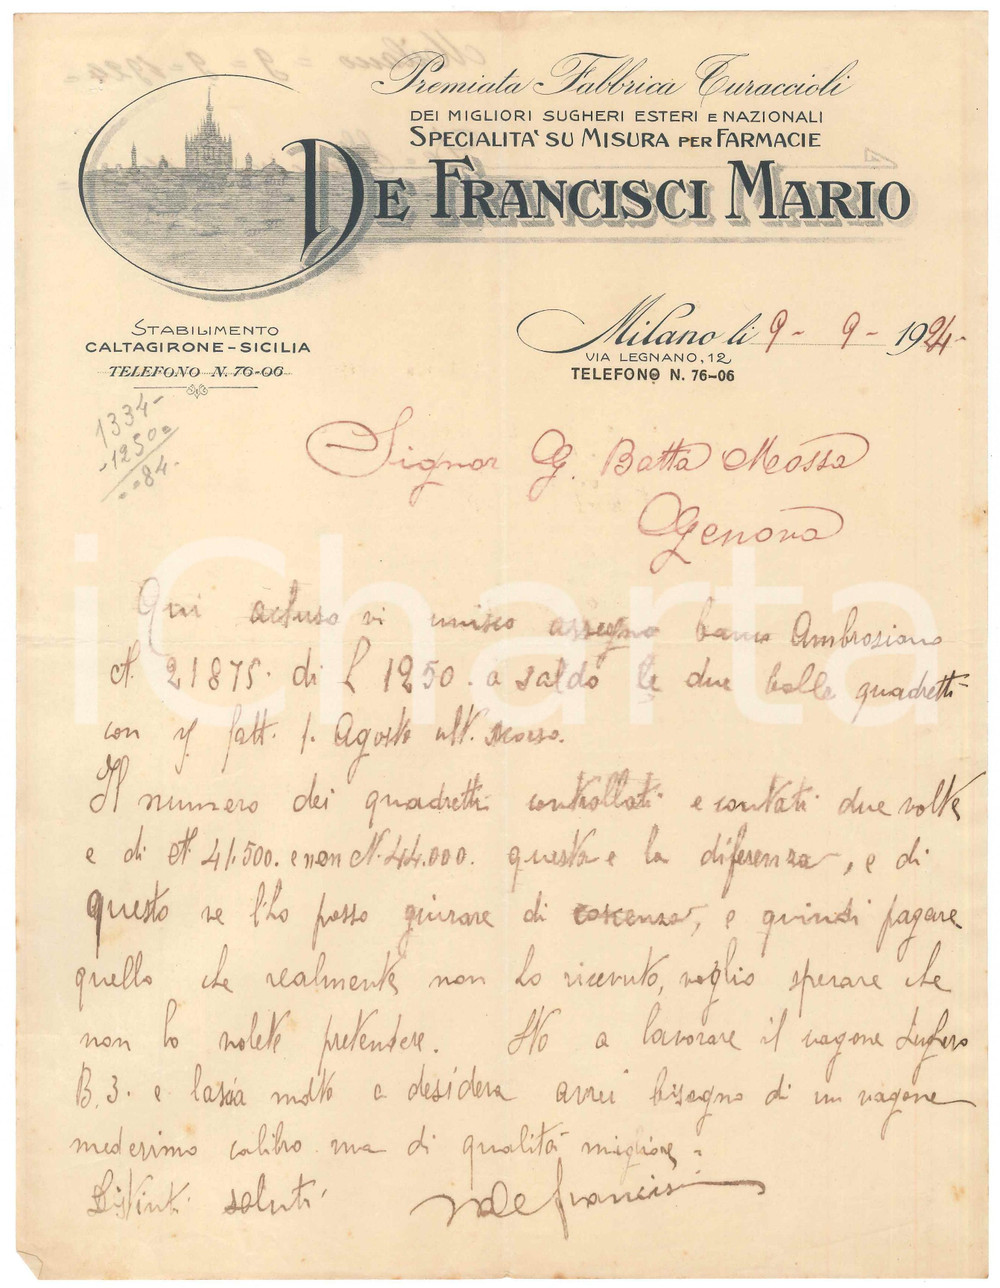 Premiata Fabbrica Turaccioli
DEI MIGLIORI SUGHERI ESTERI E NAZIONALI
SPECIALITA' SU MISURA PER FARMACIE
DE FRANCISCI MARIO
STABILIMENTO
CALTAGIRONE-SICILIA
TELEFONO N. 76-06
Milano li 9 - 9 - 1924
VIA LEGNANO, 12
TELEFONO N. 76-06
1334-
-1250
84
Signor G. Batta Mossa
Genova
iCharta
Qui acluso vi unisco assegno banco Ambrosiano
N. 21875. di L 1250. a saldo le due balle quadretti
con fatt. 1. Agosto ult. scorso.
Il numero dei quadretti controllati e contati due volte
e di N. 41.500. e non N. 44.000. questa e la diferenza, e di
questo ve l'ho posso giurare di coscenza, e quindi pagare
quello che realmente non ho ricevuto, voglio sperare che
non lo volete pretendere. Sto a lavorare il vagone sughero
B. 3. e lascia molto a desidera avrei bisogno di un vagone
medesimo calibro ma di qualità migliore.
Distinti saluti
M De Francisci